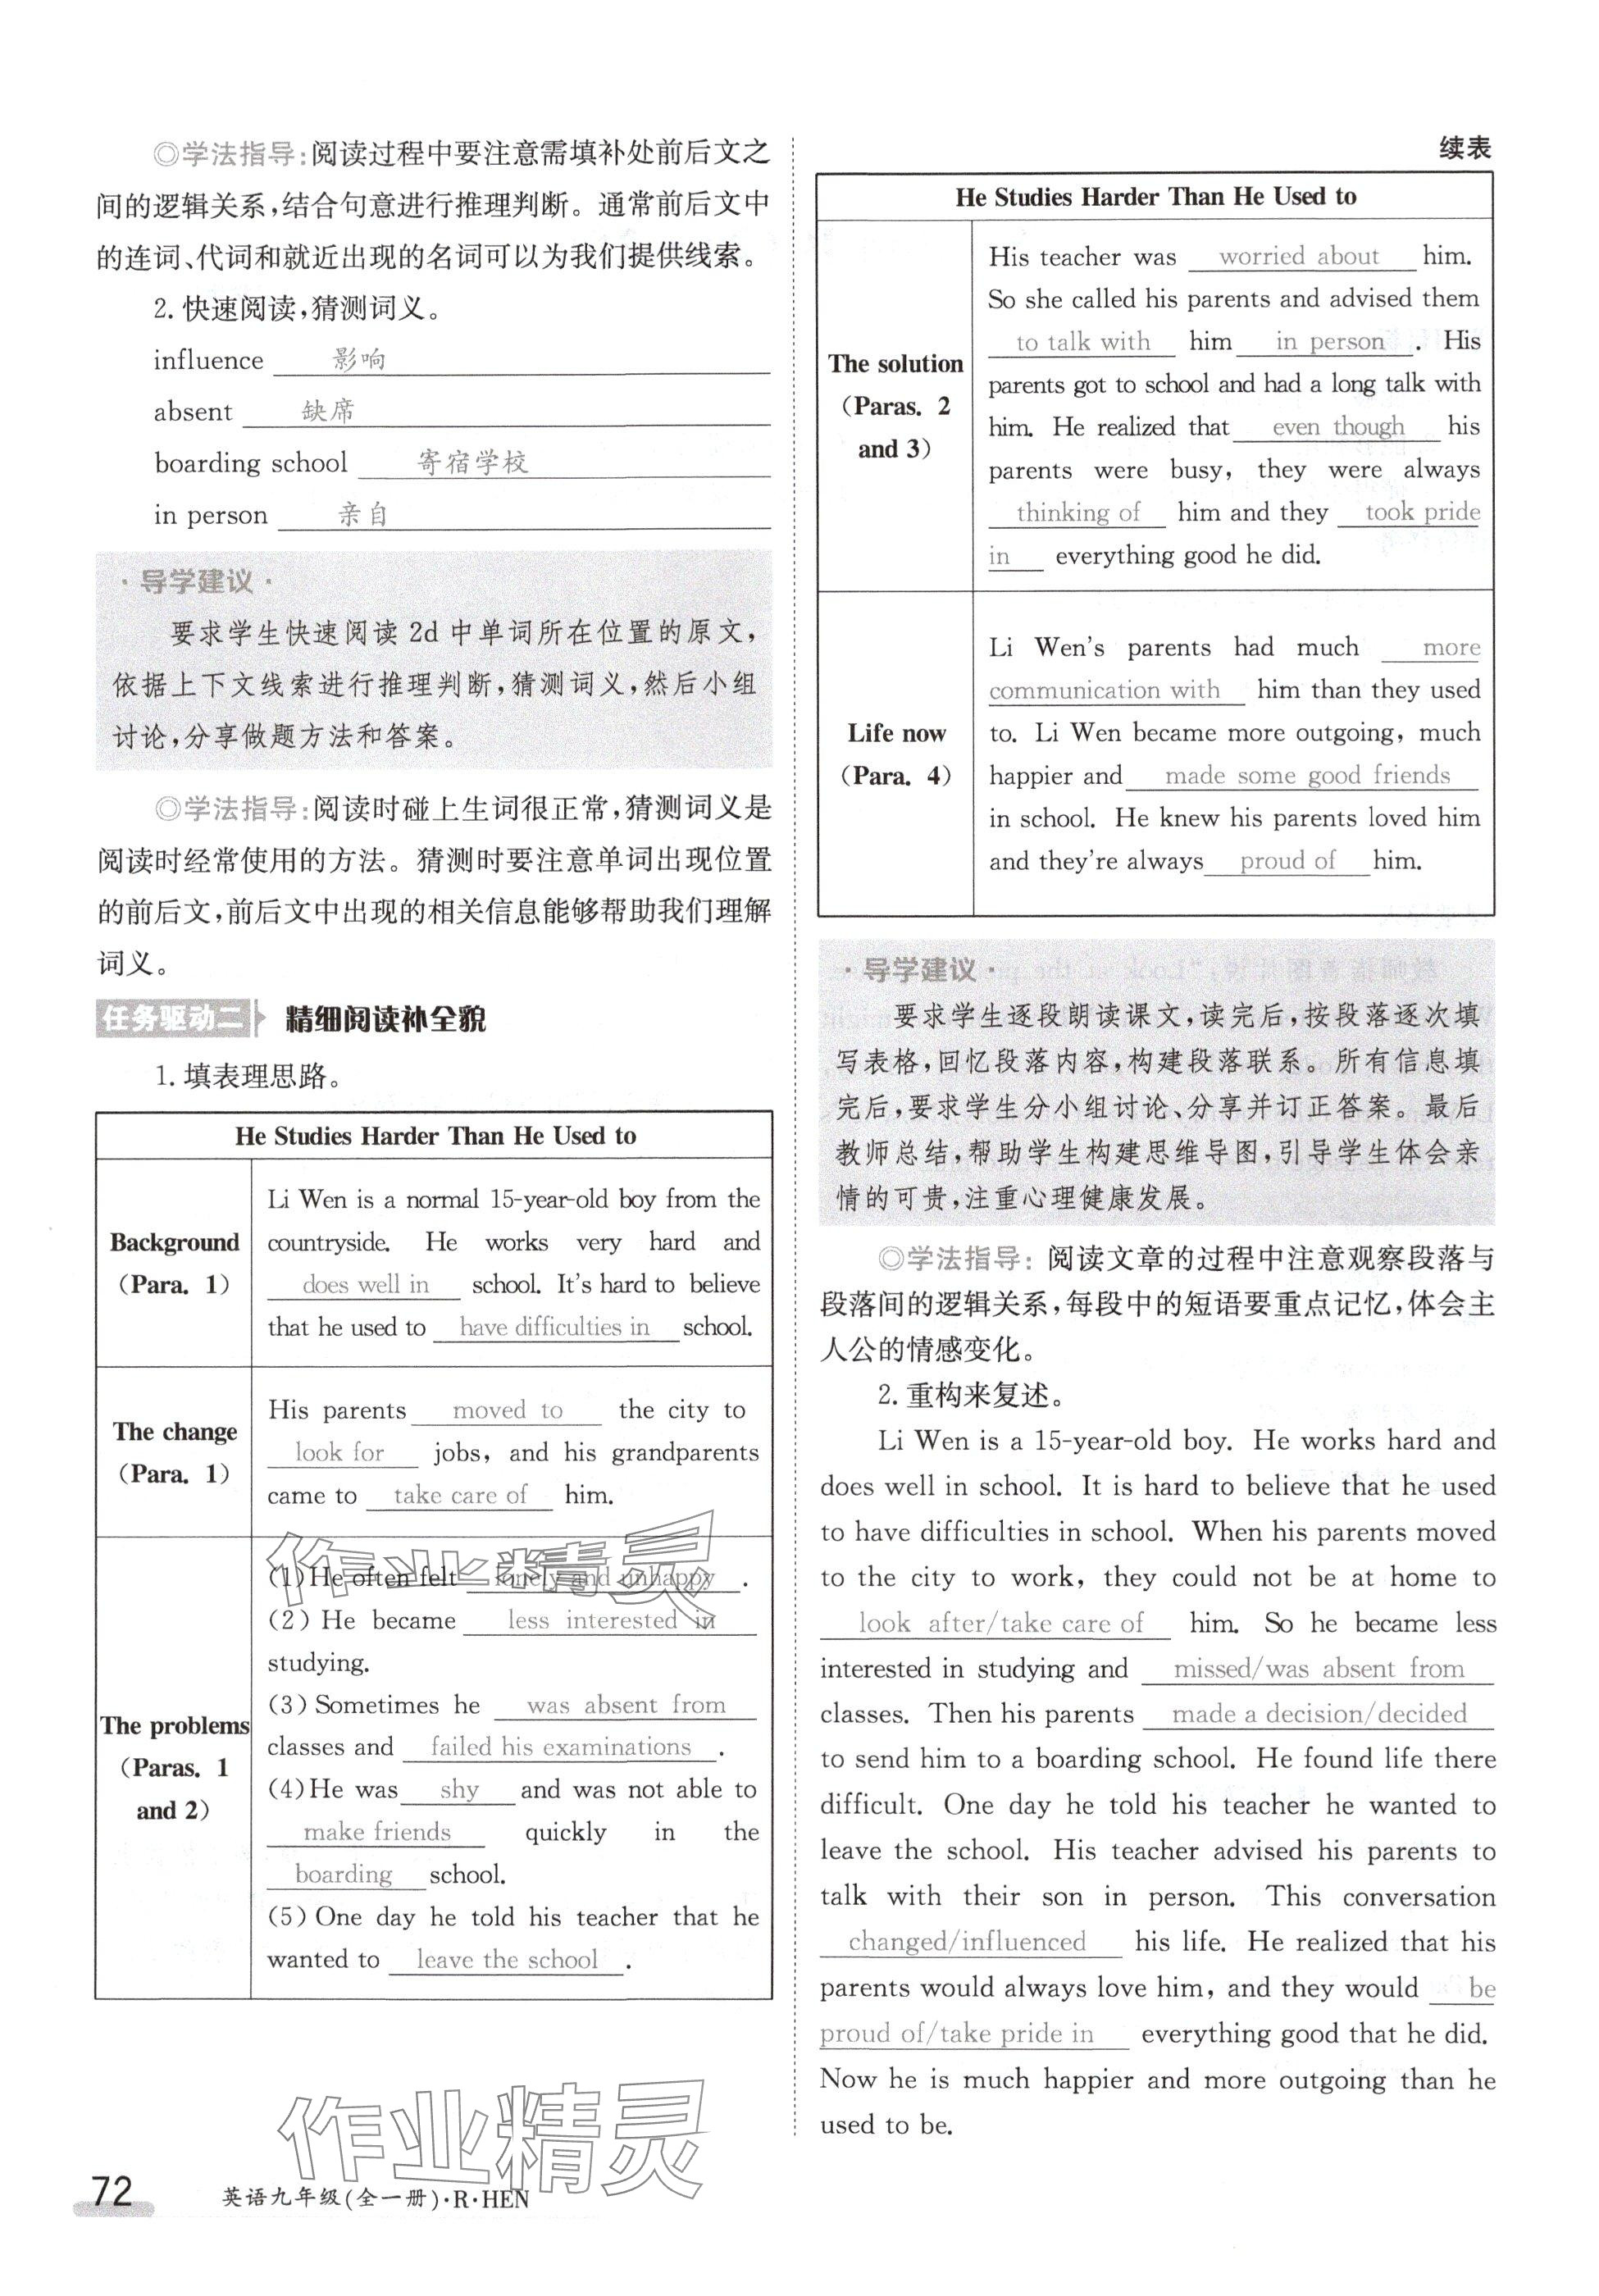 ◎学法指导:阅读过程中要注意需填补处前后文之
间的逻辑关系,结合句意进行推理判断。通常前后文中
的连词、代词和就近出现的名词可以为我们提供线索。
2. 快速阅读,猜测词义。
influence 影响
absent 缺席
boarding school 寄宿学校
in person 亲自
·导学建议·
要求学生快速阅读 2d 中单词所在位置的原文,
依据上下文线索进行推理判断,猜测词义,然后小组
讨论,分享做题方法和答案。
◎学法指导:阅读时碰上生词很正常,猜测词义是
阅读时经常使用的方法。猜测时要注意单词出现位置
的前后文,前后文中出现的相关信息能够帮助我们理解
词义。
任务驱动二 精细阅读补全貌
1. 填表理思路。
He Studies Harder Than He Used to
Background
(Para. 1)
Li Wen is a normal 15-year-old boy from the
countryside. He works very hard and
does well in school. It's hard to believe
that he used to have difficulties in school.
The change
(Para. 1)
His parents moved to the city to
look for jobs, and his grandparents
came to take care of him.
The problems
(Paras. 1
and 2)
(1)He often felt lonely and unhappy.
(2) He became less interested in
studying.
(3) Sometimes he was absent from
classes and failed his examinations.
(4)He was shy and was not able to
make friends quickly in the
boarding school.
(5) One day he told his teacher that he
wanted to leave the school.
作业精灵
作业精灵
72
英语九年级(全一册)·R·HEN
续表
He Studies Harder Than He Used to
The solution
(Paras. 2
and 3)
His teacher was worried about him.
So she called his parents and advised them
to talk with him in person. His
parents got to school and had a long talk with
him. He realized that even though his
parents were busy, they were always
thinking of him and they took pride
in everything good he did.
Life now
(Para. 4)
Li Wen's parents had much more
communication with him than they used
to. Li Wen became more outgoing, much
happier and made some good friends
in school. He knew his parents loved him
and they're always proud of him.
·导学建议·
要求学生逐段朗读课文,读完后,按段落逐次填
写表格,回忆段落内容,构建段落联系。所有信息填
完后,要求学生分小组讨论、分享并订正答案。最后
教师总结,帮助学生构建思维导图,引导学生体会亲
情的可贵,注重心理健康发展。
◎学法指导: 阅读文章的过程中注意观察段落与
段落间的逻辑关系,每段中的短语要重点记忆,体会主
人公的情感变化。
2. 重构来复述。
Li Wen is a 15-year-old boy. He works hard and
does well in school. It is hard to believe that he used
to have difficulties in school. When his parents moved
to the city to work, they could not be at home to
look after/take care of him. So he became less
interested in studying and missed/was absent from
classes. Then his parents made a decision/decided
to send him to a boarding school. He found life there
difficult. One day he told his teacher he wanted to
leave the school. His teacher advised his parents to
talk with their son in person. This conversation
changed/influenced his life. He realized that his
parents would always love him, and they would be
proud of/take pride in everything good that he did.
Now he is much happier and more outgoing than he
used to be.